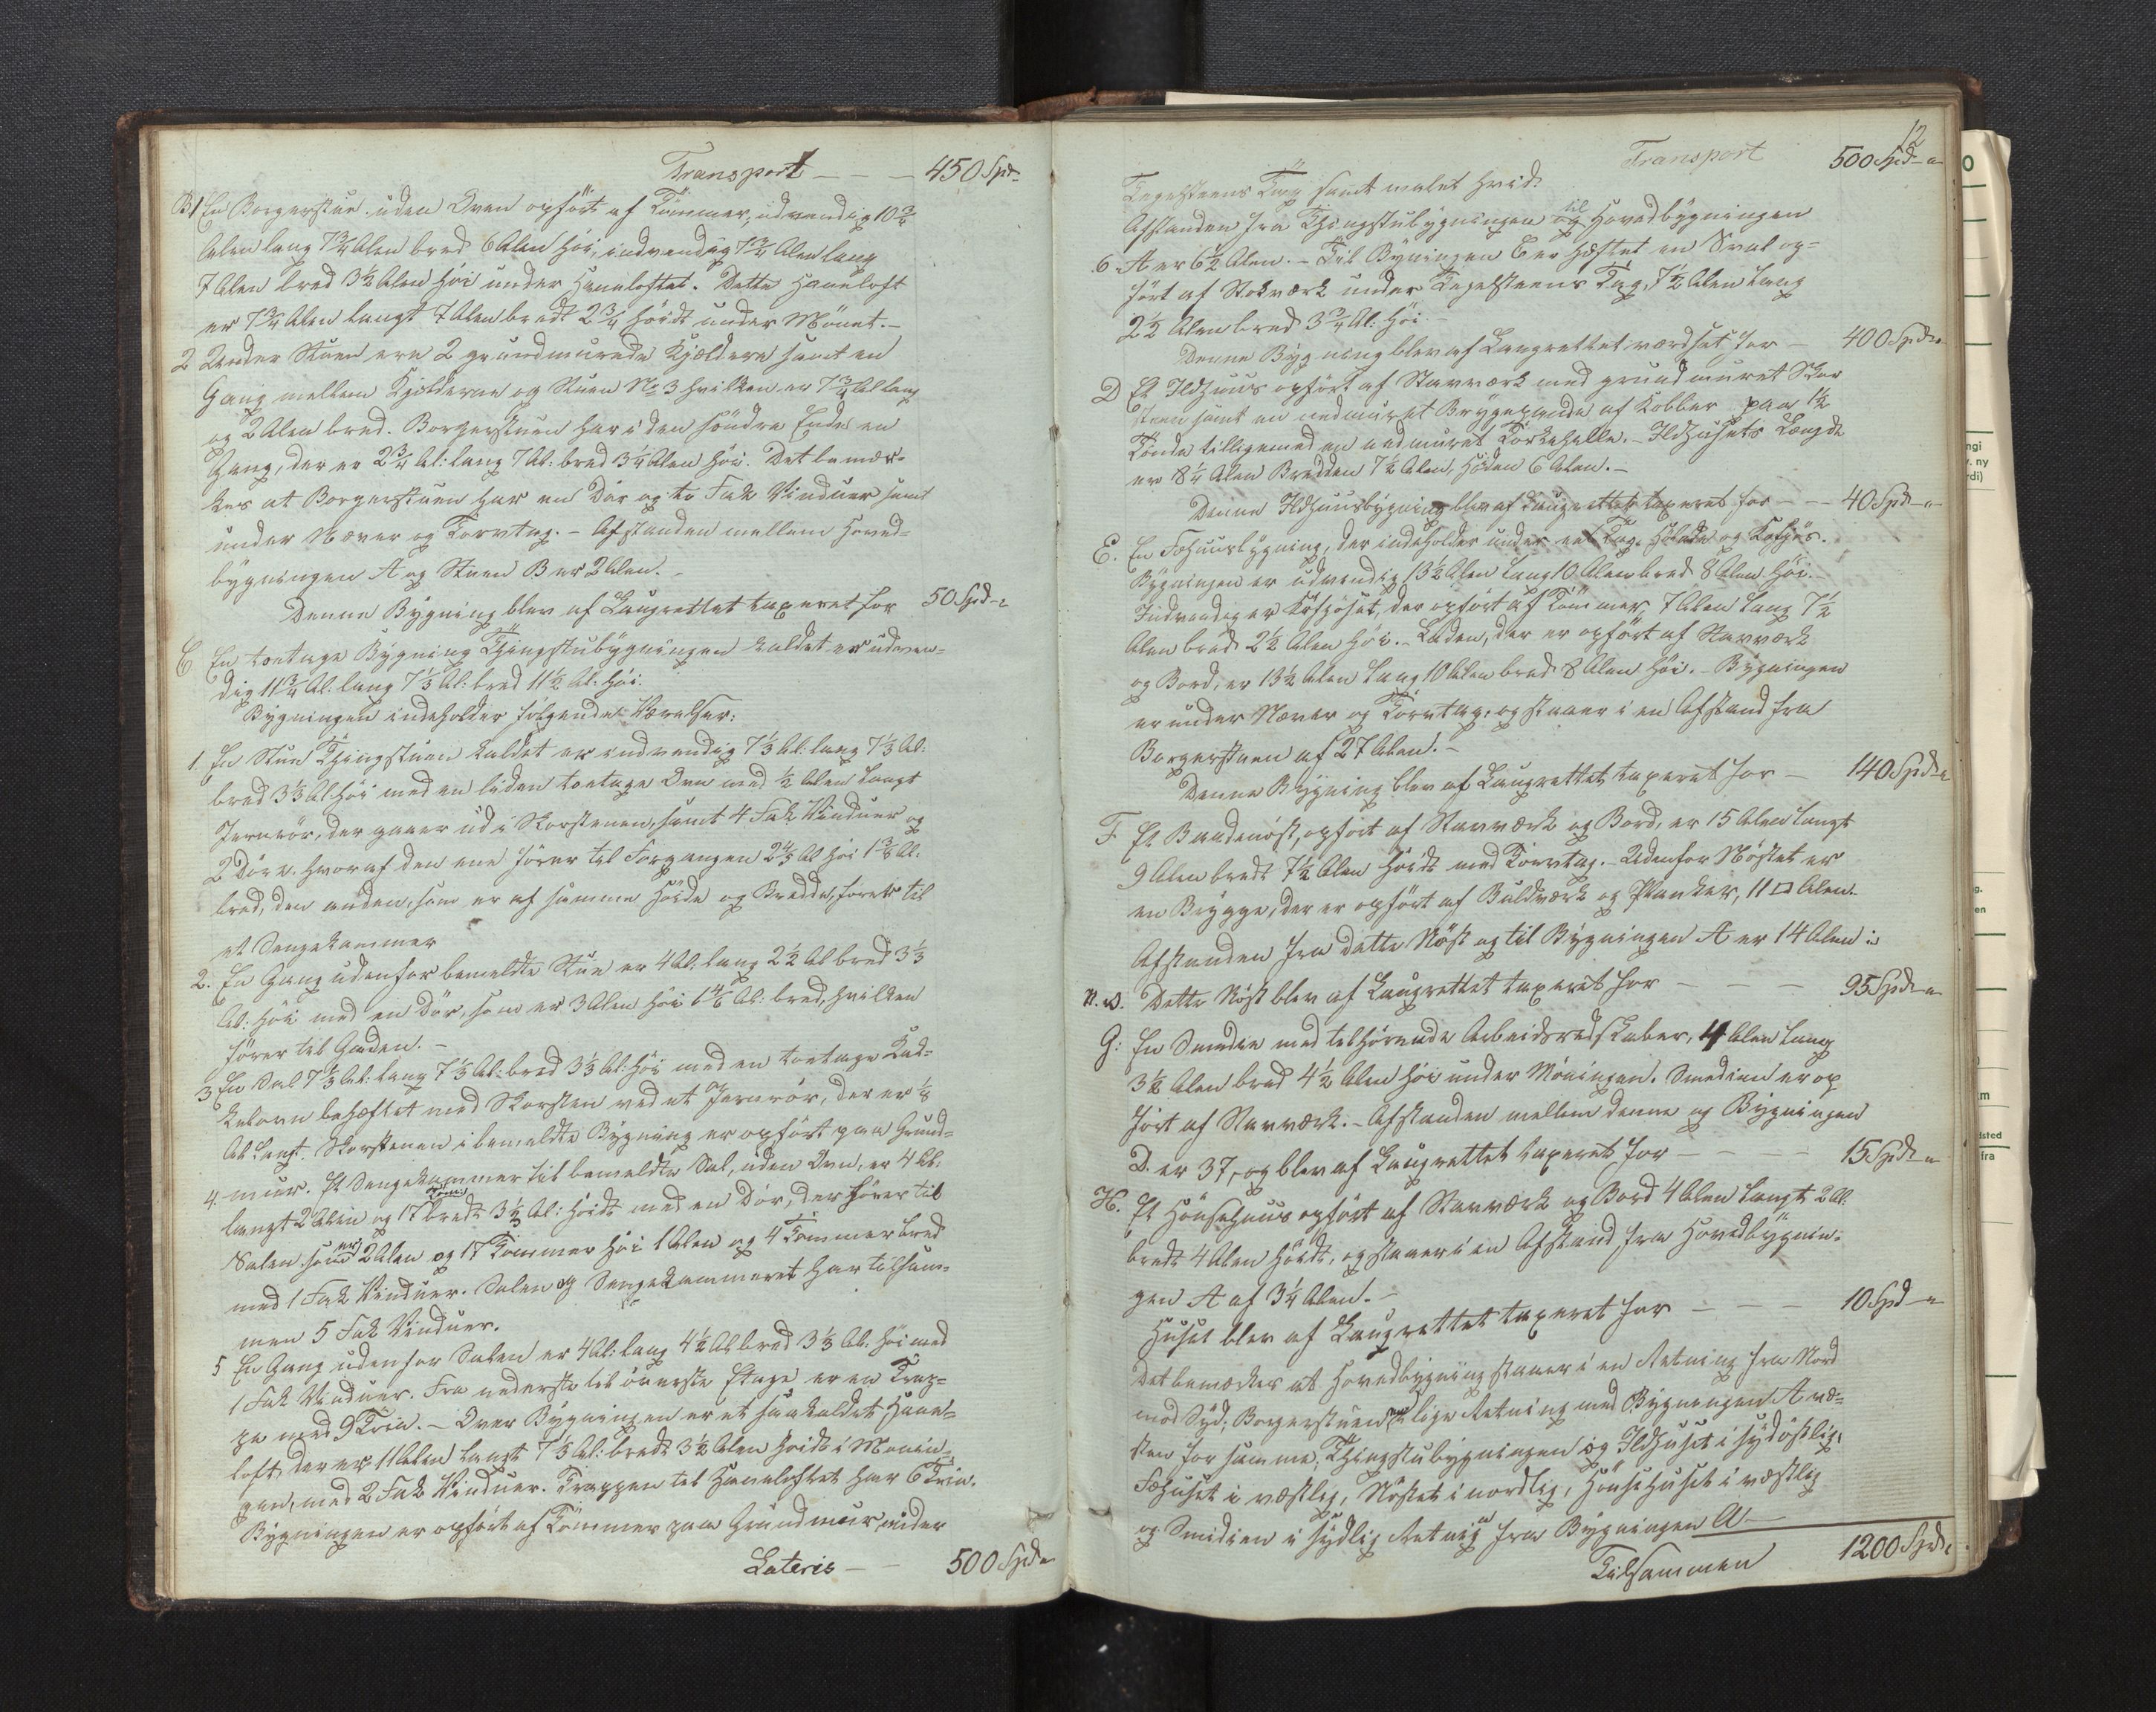 Transport — — — 450 Spd
B.1 En Borgerstue uden Oven opført af Tømmer, udvendig 10 3/4
Alen lang 7 3/4 Alen bred 6 Alen høi, indvendig 7 3/4 Alen lang
7 Alen bred 3 1/2 Alen høi under Haneloftet. Dette Haneloft
er 7 3/4 Alen langt 7 Alen bredt 2 3/4 høidt under Mønet.—
2 Under Stuen ere 2 grundmurede Kjældere samt en
Gang mellem Kjelderne og Stuen No 3 hvilken er 7 3/4 Al lang
og 2 Alen bred. Borgerstuen har i den søndre Ende en
Gang, der er 2 3/4 Al: lang 7 Al: bred 3 1/4 Alen høi. Det bemær-
kes at Borgerstuen har en Dør og to Fak Vinduer samt
under Næver og Torvtag. — Afstanden mellem Hoved-
bygningen A og Stuen B er 2 Alen.
Denne Bygning blev af Laugrettet taxeret for 50 Spd
C En toetage Bygning Thingstubygningen kaldet er udven-
dig 11 3/4 Al: lang 7 1/3 Al: bred 11 1/2 Al. høi.
Bygningen indeholder følgende Værelser:
1. En Stue Thingstuen kaldet er indvendig 7 1/3 Al: lang 7 1/3 Al:
bred 3 1/3 Al høi med en liden toetage Ovn med 1/2 Alen langt
Jernrør, der gaaer ud i Skorstenen, samt 4 Fak Vinduer og
2 Døre. hvoraf den ene fører til Forgangen 2 4/5 Al høi 1 3/8 Al.
bred, den anden, som er af samme Høide og Bredde, fører til
et Sengekammer
2. En Gang udenfor bemeldte Stue er 4 Al: lang 2 1/2 Al bred 3 1/3
Al: høi med en Dør, som er 3 Alen høi 1 4/6 Al: bred, hvilken
fører til Gaden. —
3 En Sal 7 1/3 Al: lang 7 1/3 Al: bred 3 1/3 Al: høi med en toetage Kak-
kelovn behæftet med Skorsten ved et Jernrør, der er 1/8
Al langt. Skorstenen i bemeldte Bygning er opført paa Grund-
4. mur. Et Sengekammer til bemeldte Sal, uden Ovn, er 4 Al.
langt 2 Alen og 17 Tomr bredt 3 1/2 Al: høidt med en Dør, der fører til
Salen som er 2 Alen og 17 Tommer høi 1 Alen og 4 Tommer bred
med 1 Fak Vinduer. Salen og Sengekammeret har tilsam-
men 5 Fak Vinduer.
5 En Gang udenfor Salen er 4 Al: lang 4 1/2 Al bred 3 1/3 Al. høi med
1 Fak Vinduer. Fra nederste til øverste Etage er en Trap-
pe med 9 Trin. — Over Bygningen er et saakaldet Hane-
loft, der er 11 Alen langt 7 1/3 Al: bredt 3 1/2 Alen høidt i Mønin-
gen, med 2 Fak Vinduer. Trappen til Haneloftet har 6 Trin.
Bygningen er opført af Tømmer paa Grundmur under
Lateris — — 500 Spd
12
Transport 500 Spd
Tegelsteens Tag samt malet hvid.
Afstanden fra Thingstubygningen til Hovedbygningen
6. A er 6 1/2 Alen. — Til Bygningen C er hæftet en Sval op-
ført af Stokværk under Tegelsteens Tag, 7 1/2 Alen lang
2 1/2 Alen bred 3 3/4 Al: høi.
Denne Bygning blev af Laugrettet værdsat for — 400 Spd
D Et Ildhuus opført af Stavværk med grundmuret Skor
steen samt en nedmuret Bryggepande af Kobber paa 1 1/2
Tønde tilligemed en nedmuret Tørkehelle. — Ildhusets Længde
er 8 1/4 Alen Bredden 7 1/2 Alen, Høiden 6 Alen. —
Denne Ildhuusbygning blev af Laugrettet taxeret for — — 40 Spd
E. En Fæhuusbygning, der indeholder under eet Tag Høelade og Kofjøs.
Bygningen er udvendig 13 1/2 Alen lang 10 Alen bred 8 Alen høi. —
Indvendig er Kofjøset, der opført af Tømmer, 7 Alen lang 7 1/2
Alen bred 2 1/2 Alen høi. — Laden, der er opført af Stavværk
og Bord, er 13 1/2 Alen lang 10 Alen bred 8 Alen høi. — Bygningen
er under Næver og Torvtag, og staaer i en Afstand fra
Borgerstuen af 27 Alen. —
Denne Bygning blev af Laugrettet taxeret for — 140 Spd
F Et Baadenøst, opført af Stavværk og Bord, er 15 Alen langt
9 Alen bredt 7 1/2 Alen høidt med Torvtag. — Udenfor Nøstet er
en Brygge, der er opført af Buldværk og Planker, 11 □ Alen.
Afstanden fra dette Nøst og til Bygningen A er 14 Alen i
N. V. Dette Nøst blev af Laugrettet taxeret for — — — 95 Spd
G: En Smedie med tilhørende Arbeidsredskaber, 4 Alen lang
3 1/2 Alen bred 4 1/2 Alen høi under Møningen. Smedien er op
ført af Stavværk. — Afstanden mellem denne og Bygningen
D. er 37, og blev af Laugrettet taxeret for — — — — 15 Spd
H. Et Hønsehuus opført af Stavværk og Bord 4 Alen langt 2 Al.
bredt 4 Alen høidt, og staaer i en Afstand fra Hovedbygnin-
gen A af 3 1/4 Alen. —
Huset blev af Laugrettet taxeret for — — — 10 Spd
Det bemærkes at Hovedbygning staaer i en Retning fra Nord
mod Syd; Borgerstuen lige Retning med Bygningen A væ-
sten for samme, Thingstubygningen og Ildhuset i sydøstlig,
Fæhuset i væstlig, Nøstet i nordlig, Hønsehuset i væstlig
og Smidien i sydlig Retning fra Bygningen A —
Tilsammen 1200 Spd